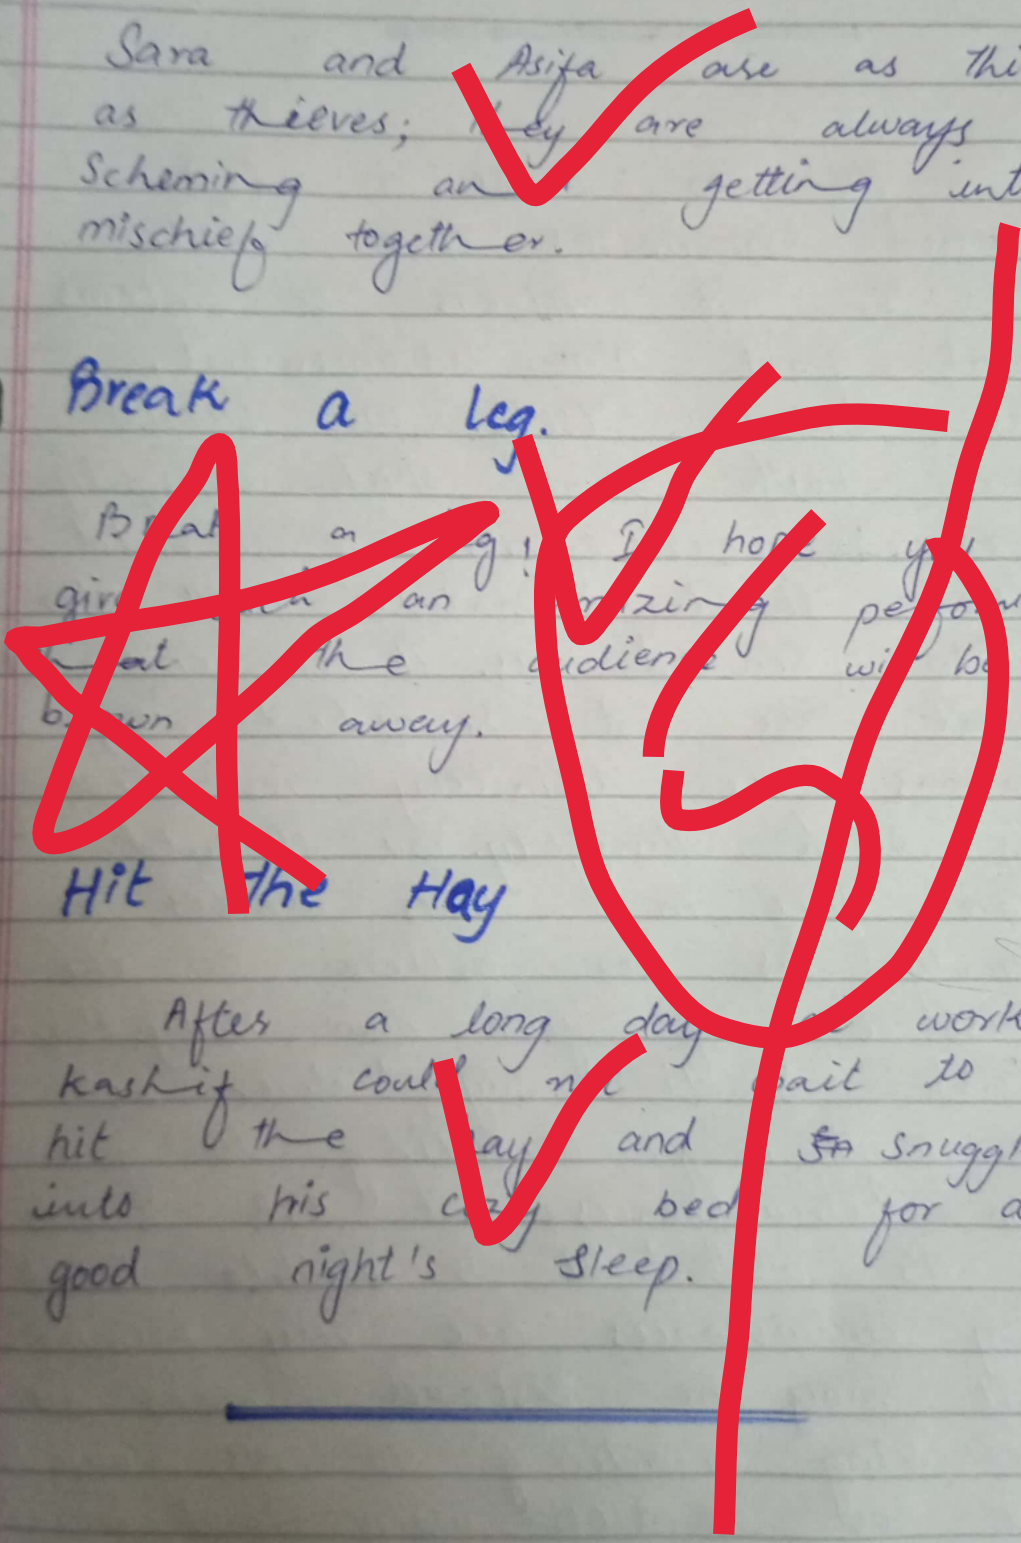 Sara and Asifa are as thi
as thieves; they are always
Scheming and getting int
mischief together.
Break a leg.
Break a leg! I hope you
give such an amazing perfor
that the audience will be
blown away.
Hit the Hay
After a long day at work
Kashif could not wait to
hit the hay and snuggl
into his cozy bed for a
good night's sleep.